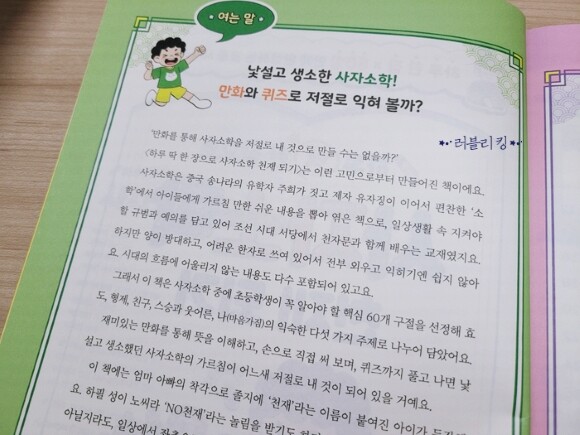 여는 말
낯설고 생소한 사자소학!
만화와 퀴즈로 저절로 익혀 볼까?
'만화를 통해 사자소학을 저절로 내 것으로 만들 수는 없을까?'
러블리킹
〈하루 딱 한 장으로 사자소학 천재 되기〉는 이런 고민으로부터 만들어진 책이에요.
사자소학은 중국 송나라의 유학자 주희가 짓고 제자 유자징이 이어서 편찬한 '소
학'에서 아이들에게 가르칠 만한 쉬운 내용을 뽑아 엮은 책으로, 일상생활 속 지켜야
할 규범과 예의를 담고 있어 조선 시대 서당에서 천자문과 함께 배우는 교재였지요.
하지만 양이 방대하고, 어려운 한자로 쓰여 있어서 전부 외우고 익히기엔 쉽지 않아
요. 시대의 흐름에 어울리지 않는 내용도 다수 포함되어 있고요.
그래서 이 책은 사자소학 중에 초등학생이 꼭 알아야 할 핵심 60개 구절을 선정해 효
도, 형제, 친구, 스승과 웃어른, 나(마음가짐)의 익숙한 다섯 가지 주제로 나누어 담았어요.
재미있는 만화를 통해 뜻을 이해하고, 손으로 직접 써 보며, 퀴즈까지 풀고 나면 낯
설고 생소했던 사자소학의 가르침이 어느새 저절로 내 것이 되어 있을 거예요.
이 책에는 엄마 아빠의 착각으로 졸지에 '천재'라는 이름이 붙여진 아이가
요. 하필 성이 노씨라 'NO천재'라는 놀림을 받기도
아닐지라도, 일상에서